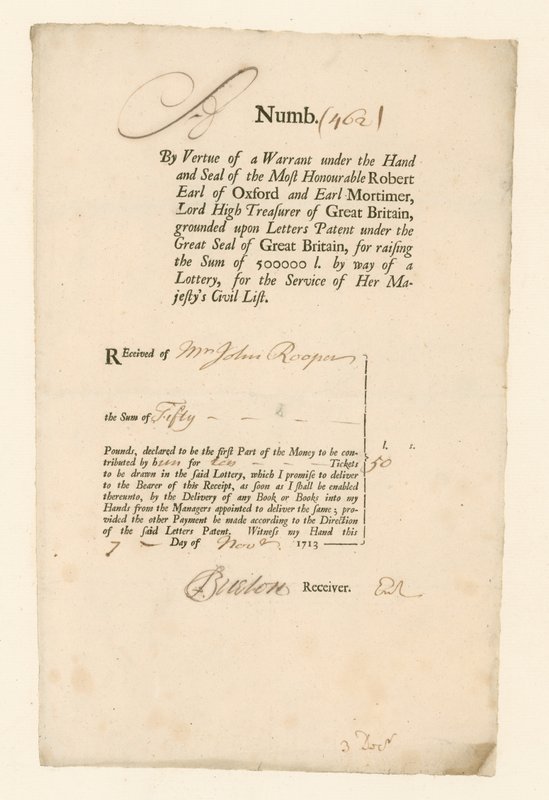 Numb. (462)
By Vertue of a Warrant under the Hand
and Seal of the Moſt Honourable Robert
Earl of Oxford and Earl Mortimer,
Lord High Treaſurer of Great Britain,
grounded upon Letters Patent under the
Great Seal of Great Britain, for raiſing
the Sum of 500000 l. by way of a
Lottery, for the Service of Her Ma-
jeſty's Civil Liſt.
REceived of Mr John Rooper
the Sum of Fifty — — — —
Pounds, declared to be the firſt Part of the Money to be con- l. s.
tributed by him for ten — — — Tickets 50
to be drawn in the ſaid Lottery, which I promiſe to deliver
to the Bearer of this Receipt, as ſoon as I ſhall be enabled
thereunto, by the Delivery of any Book or Books into my
Hands from the Managers appointed to deliver the ſame; pro-
vided the other Payment be made according to the Direction
of the ſaid Letters Patent. Witneſs my Hand this
7 — Day of Novr. 1713
Receiver.